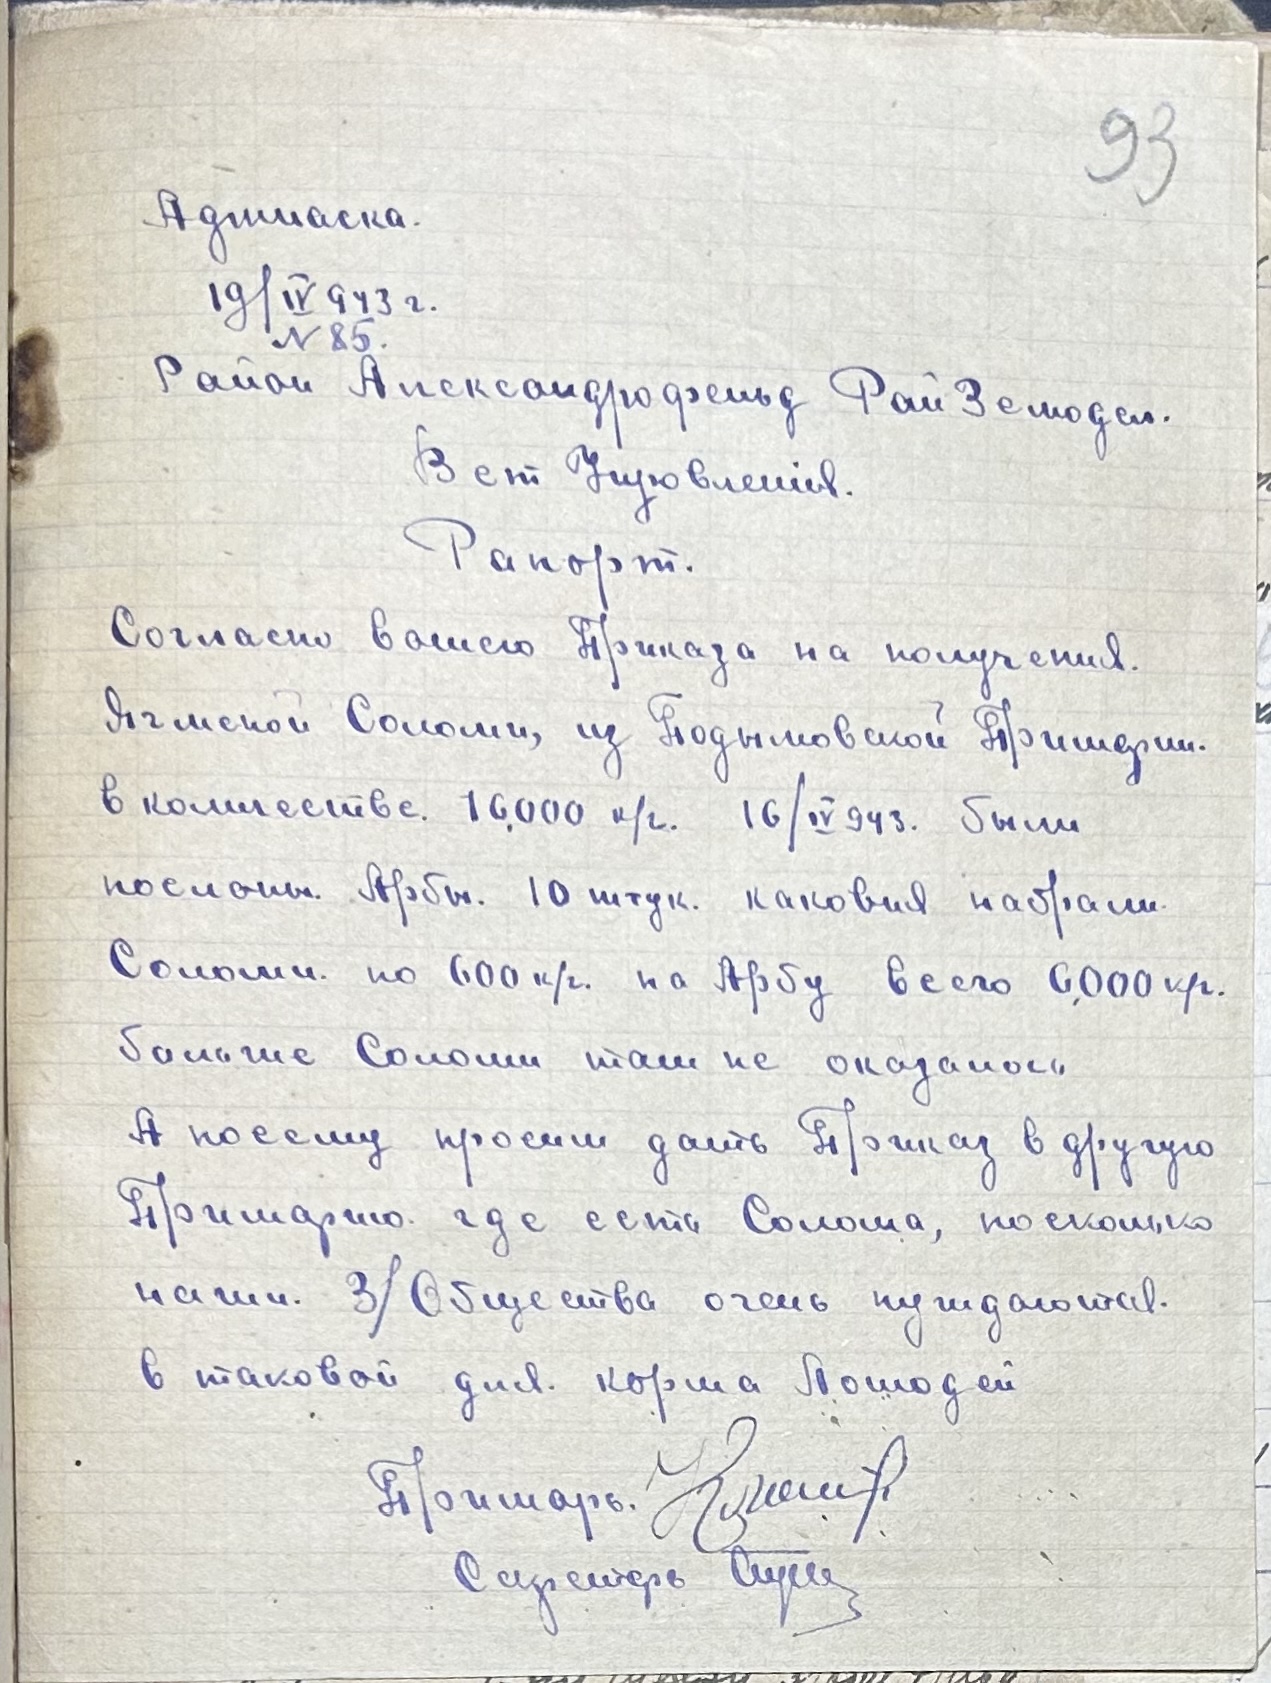 93
Аджиаска.
19/IV 943 г.
N 85.
Район Александрофельд РайЗемодел.
Вет Управления.
Рапорт.
Согласно вашего Приказа на получения.
Ячмской Соломи, из Подымовской Примарии.
в количестве. 16,000 к/г. 16/IV 943. были
посланы. Арбы. 10 штук. каковия набрали
Соломи. по 600 к/г. на Арбу всего 6,000 к/г.
больше Соломи там не оказалось
А посему просим дать Приказ в другую
Примарию. где есть Солома, посколько
наши. З/Общества очень нуждаются.
в таковой для. корма Лошодей
Примарь.
Секретарь